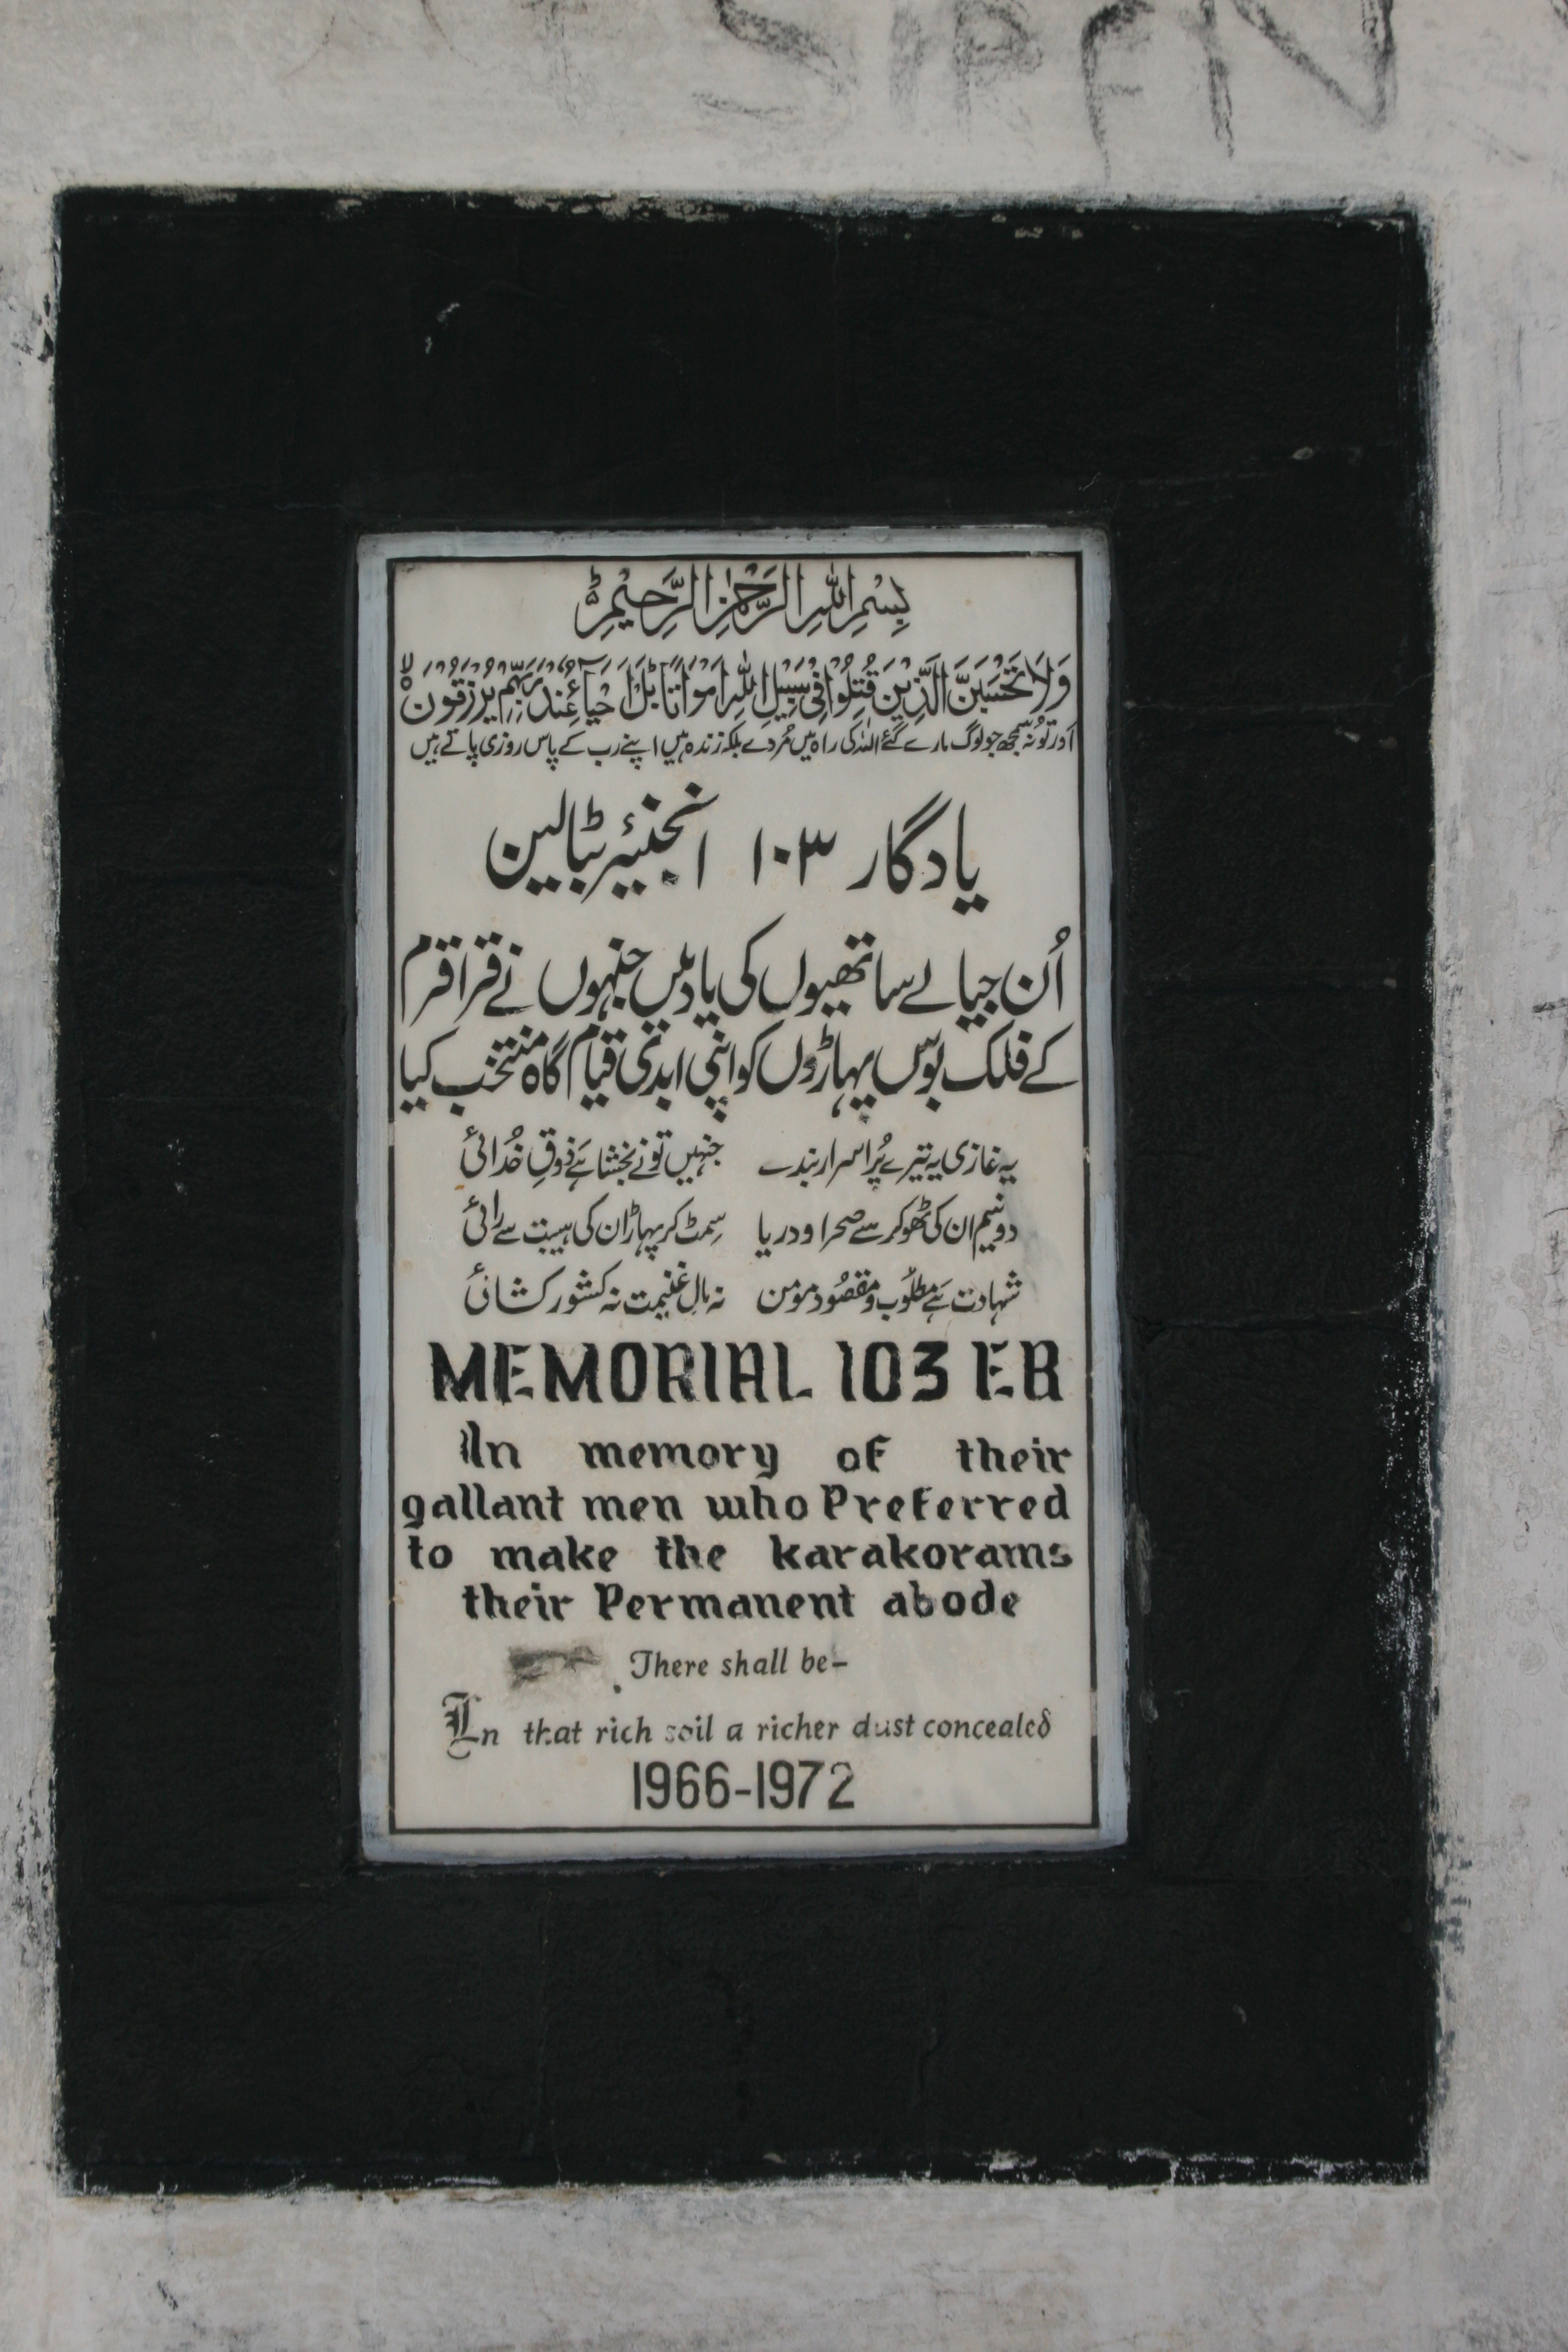 SIPEN
بِسْمِ اللهِ الرَّحْمٰنِ الرَّحِيْمِ
وَلَا تَحْسَبَنَّ الَّذِيْنَ قُتِلُوْا فِيْ سَبِيْلِ اللهِ اَمْوَاتًا بَلْ اَحْيَآءٌ عِنْدَ رَبِّهِمْ يُرْزَقُوْنَ
اور تُو نہ سمجھ جو لوگ مارے گئے اللہ کی راہ میں مُردے بلکہ زندہ ہیں اپنے رب کے پاس روزی پاتے ہیں
یادگار ۱۰۳ انجنیئر بٹالین
اُن جیالے ساتھیوں کی یاد میں جنہوں نے قراقرم
کے فلک بوس پہاڑوں کو اپنی ابدی قیام گاہ منتخب کیا
یہ غازی یہ تیرے پُراسرار بندے جنہیں تو نے بخشا ہے ذوقِ خُدائی
دو نیم ان کی ٹھوکر سے صحرا و دریا سِمٹ کر پہاڑ ان کی ہیبت سے رائی
شہادت ہے مطلُوب و مقصُود مومن نہ مالِ غنیمت نہ کشور کشائی
MEMORIAL 103 EB
In memory of their
gallant men who Preferred
to make the karakorams
their Permanent abode
There shall be–
In that rich soil a richer dust concealed
1966-1972